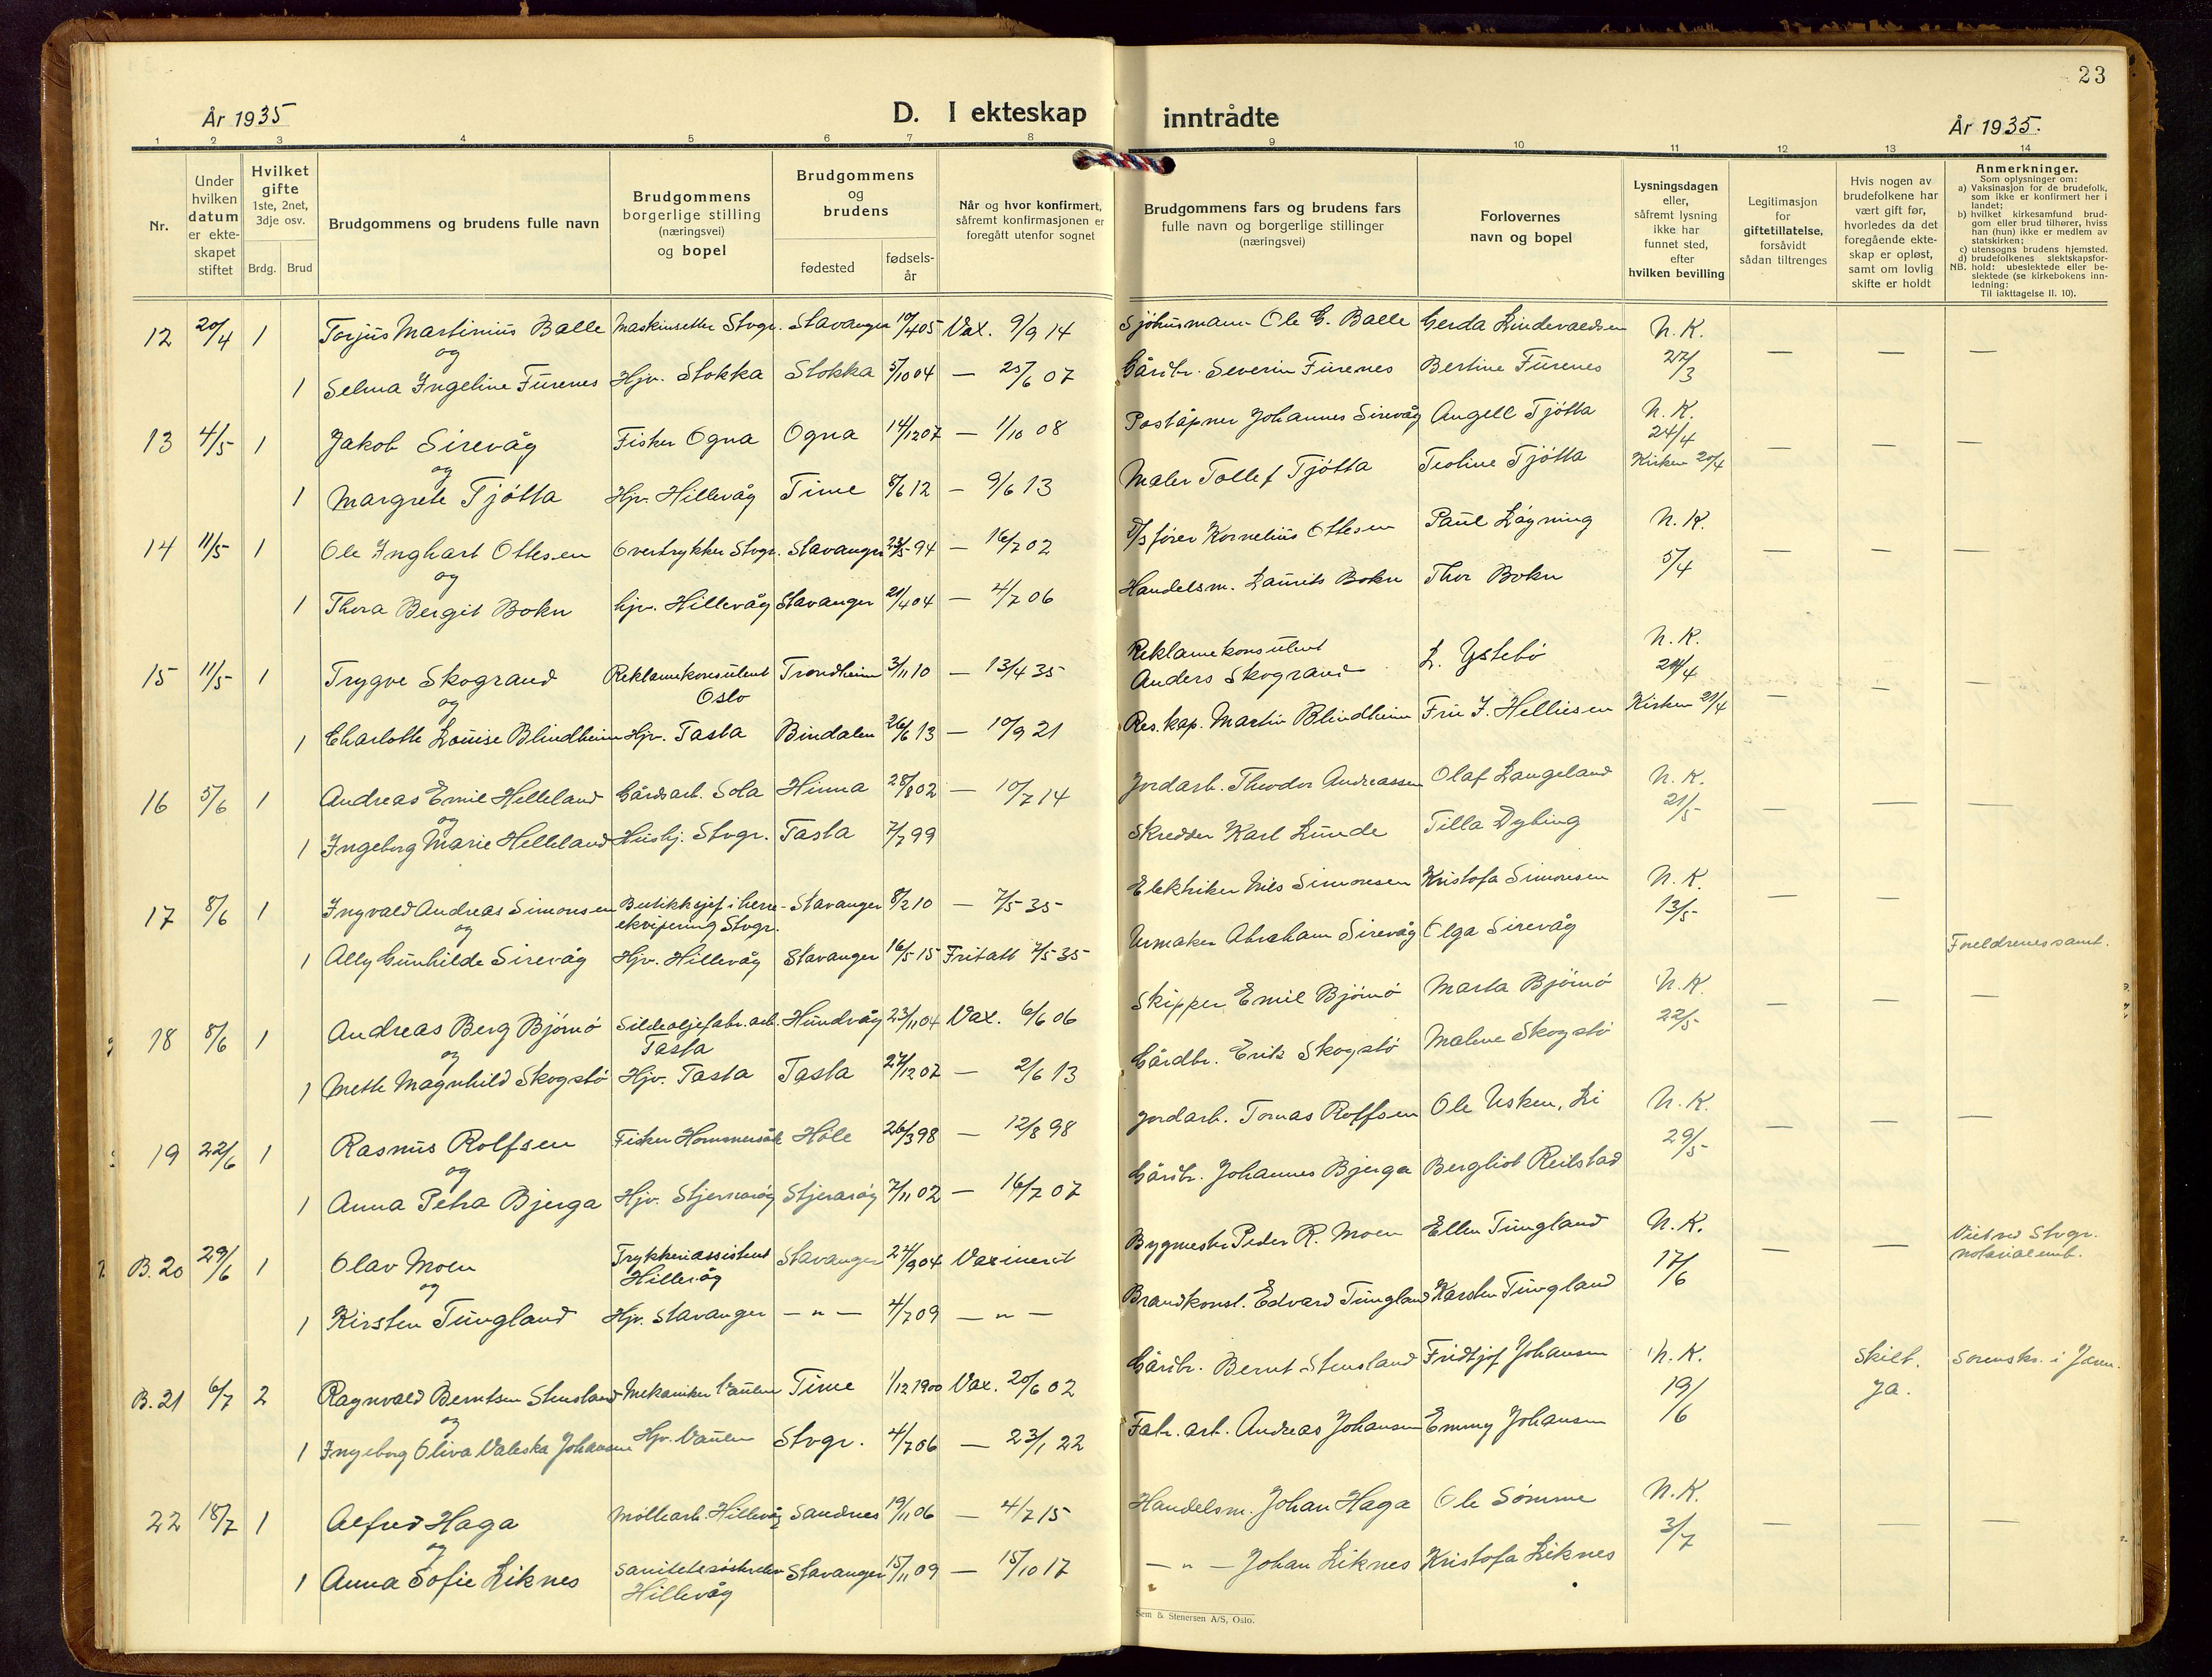 23
År 1935
D. I ekteskap inntrådte
År 1935.
1 2 3 4 5 6 7 8 9 10 11 12 13 14
Nr.
Under hvilken datum er ekteskapet stiftet
Hvilket gifte 1ste, 2net, 3dje osv.
Brdg. Brud
Brudgommens og brudens fulle navn
Brudgommens borgerlige stilling (næringsvei) og bopel
Brudgommens og brudens
fødested
fødselsår
Når og hvor konfirmert, såfremt konfirmasjonen er foregått utenfor sognet
Brudgommens fars og brudens fars fulle navn og borgerlige stillinger (næringsvei)
Forlovernes navn og bopel
Lysningsdagen eller, såfremt lysning ikke har funnet sted, efter hvilken bevilling
Legitimasjon for giftetillatelse, forsåvidt sådan tiltrenges
Hvis nogen av brudefolkene har vært gift før, hvorledes da det foregående ekteskap er opløst, samt om lovlig skifte er holdt
Anmerkninger.
Som oplysninger om:
a) Vaksinasjon for de brudefolk, som ikke er konfirmert her i landet;
b) hvilket kirkesamfund brudgom eller brud tilhører, hviss han (hun) ikke er medlem av statskirken;
c) utensogns brudens hjemsted.
d) brudefolkenes slektskapsforhold: ubeslektede eller beslektede (se kirkebokens innledning:
NB. Til iakttagelse II. 10).
12 20/4 1 Torjus Martinius Balle Maskinsetter Stvgr. Stavanger 10/4 05 Vax. 9/9 14 Sjøhusmann Ole G. Balle Gerda Lindevaldsen N.K.
og
1 Selma Ingeline Furenes Hjv. Stokka Stokka 5/10 04 — 25/6 07 Gårdbr. Severin Furenes Bertine Furenes 27/3 — — —
13 4/5 1 Jakob Sirevåg Fisker Ogna Ogna 14/12 07 — 1/10 08 Poståpner Johannes Sirevåg Angell Tjötta N.K. 24/4
og
1 Margrete Tjötta Hjv. Hillevåg Time 8/6 12 — 9/6 13 Maler Tollef Tjötta Teoline Tjötta Kirken 20/4 — — —
14 11/5 1 Ole Inghart Ottesen Overtrykker Stvgr. Stavanger 23/5 94 — 16/7 02 D/S fører Kornelius Ottesen Paul Lågning N.K.
og
1 Thora Bergit Bokn hjv. Hillevåg Stavanger 21/4 04 — 4/7 06 Handelsm. Laurits Bokn Thor Bokn 5/4 — — —
15 11/5 1 Trygve Skogrand Reklamekonsulent Oslo Trondheim 3/11 10 — 13/4 35 Reklamekonsulent Anders Skogrand L. Ystebö N.K. 24/4
og
1 Charlotte Louise Blindheim Hjv. Tasta Bindalen 26/6 13 — 10/9 21 Res. kap. Martin Blindheim Fru J. Helliesen Kirken 21/4 — — —
16 5/6 1 Andreas Emil Helleland Gårdsarb. Sola Hinna 28/8 02 — 10/7 14 Jordarb. Theodor Andreassen Olaf Langeland N.K.
og
1 Ingeborg Marie Helleland Hushj. Stvgr. Tasta 7/7 99 Skredder Karl Lunde Tilla Dybing 21/5 — — —
17 8/6 1 Ingvald Andreas Simonsen Butikksjef i herreekvipering Stvgr. Stavanger 8/2 10 — 7/5 35 Elektriker Nils Simonsen Kristofa Simonsen N.K.
og
1 Ally Gunhilde Sirevåg Hjv. Hillevåg Stavanger 16/5 15 Fritatt 7/5 35 Urmaker Abraham Sirevåg Olga Sirevåg 13/5 — — Foreldrenes samt.
18 8/6 1 Andreas Berg Bjørnö Sildeoljefabr. arb. Tasta Hundvåg 23/11 04 Vax. 6/6 06 Skipper Emil Bjørnö Marta Bjørnö N.K.
og
1 Mette Magnhild Skogstö Hjv. Tasta Tasta 27/12 07 — 2/6 13 Gårdbr. Erik Skogstö Malene Skogstö 22/5 — — —
19 22/6 1 Rasmus Rolfsen Fisker Hommersåk Høle 26/3 98 — 12/8 98 Jordarb. Tomas Rolfsen Ole Usken, Li N.K.
og
1 Anna Petra Bjerga Hjv. Stjernarøy Stjernarøy 7/11 02 — 16/7 07 Gårdbr. Johannes Bjerga Bergliot Reilstad 29/5 — — —
B. 20 29/6 1 Olav Moen Trykkeriassistent Hillevåg Stavanger 24/9 04 Vaxinert Bygmestr. Peder R. Moen Ellen Tungland N.K.
og
1 Kirsten Tungland Hjv. Stavanger — " — 4/7 09 — " — Brandkonst. Edvard Tungland Karsten Tungland 17/6 — — Viet ved Stvgr. notarialemb.
B. 21 6/7 2 Ragnvald Berntsen Stensland Mekaniker Vaulen Time 1/12 1900 Vax. 20/6 02 Gårdbr. Bernt Stensland Fridtjof Johansen N.K. Skilt. Ja. Sorenskr. i Jæren.
og
1 Ingeborg Oliva Valeska Johansen Hjv. Vaulen Stvgr. 4/7 06 — 23/1 22 Fabr. arb. Andreas Johansen Emmy Johansen 19/6
22 18/7 1 Alfred Haga Møllearb. Hillevåg Sandnes 19/11 06 — 4/7 15 Handelsm. Johan Haga Ole Sømme N.K.
og
1 Anna Sofie Liknes Hillevåg Stavanger 15/11 09 — 15/10 17 — " — Johan Liknes Kristofa Liknes 3/7 — — —
Sem & Stenersen A/S, Oslo.